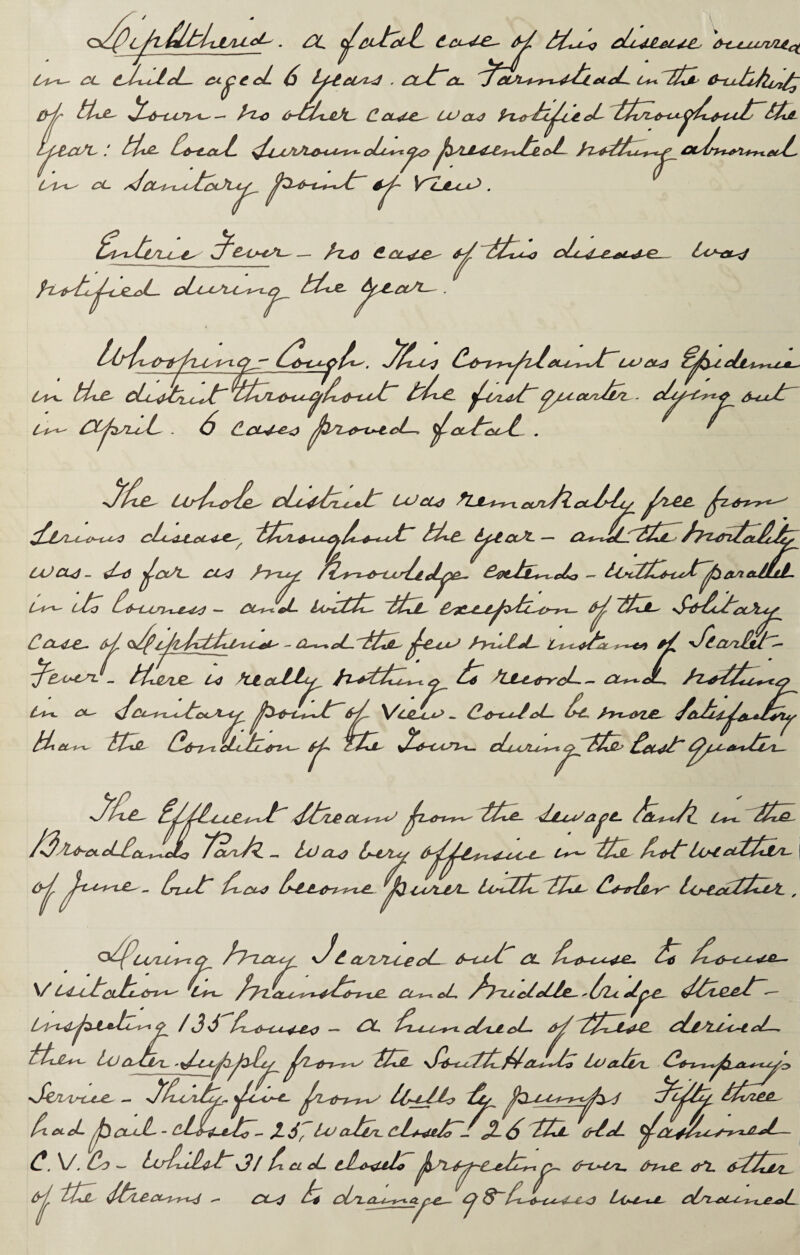 Diphtheria. A fatal case of this disease occurred
in a child aged 6 years. at a Farmstead in the outskirts
of the Town — no other case was notified throughout the
year: the Local surroundings presented nothing abnormal
in a sanitary point of view.
Enteric Fever — no case of this disease was
notified during the year.
Whooping-Cough. This Complaint was Epidemic
in the district throughout the first quarter. dying out
in April. 6 Cases proved fatal.
The whole district was remarkably free from
serious disease, throughout the year — and the mortality
was - so far as my knowledge extends - without parallel
in its lowness — and with the exception of the Solitary
Case of Diphtheria - and the few mild instances of Scarlet-
Fever - there is really nothing to record — and nothing
in a sanitary point of view - Could be more satisfactory
than the Condition of the Town during the last Quarter
The Effluent stream from the sewage tank in the
Broadlands Park - was very offensive in the hot weather
of June - but has become purer with the Cooler weather.
During May I carried out a house to house
Visitation in Mainstone and Middle-bridge Street —
inspecting 135 houses — a hundred of these derived
their water-supply from the South Hants Water Company's
Service — Thirty-five from Wells by pumps Fifty three
had pail-closets - 25 water closets - 26 the old fashioned
C.V. Cs — whilst 31 had closets projecting over one or other
of the streams - as to drainage 98 houses were drained